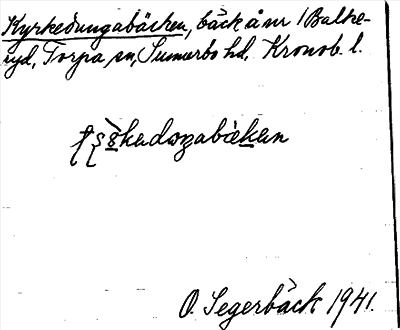 Kyrkedungabäcken, bäck å nr 1 Balke-
ryd, Torpa sn, Sunnerbo hd, Kronob. l.
O. Segerbäck 1941.